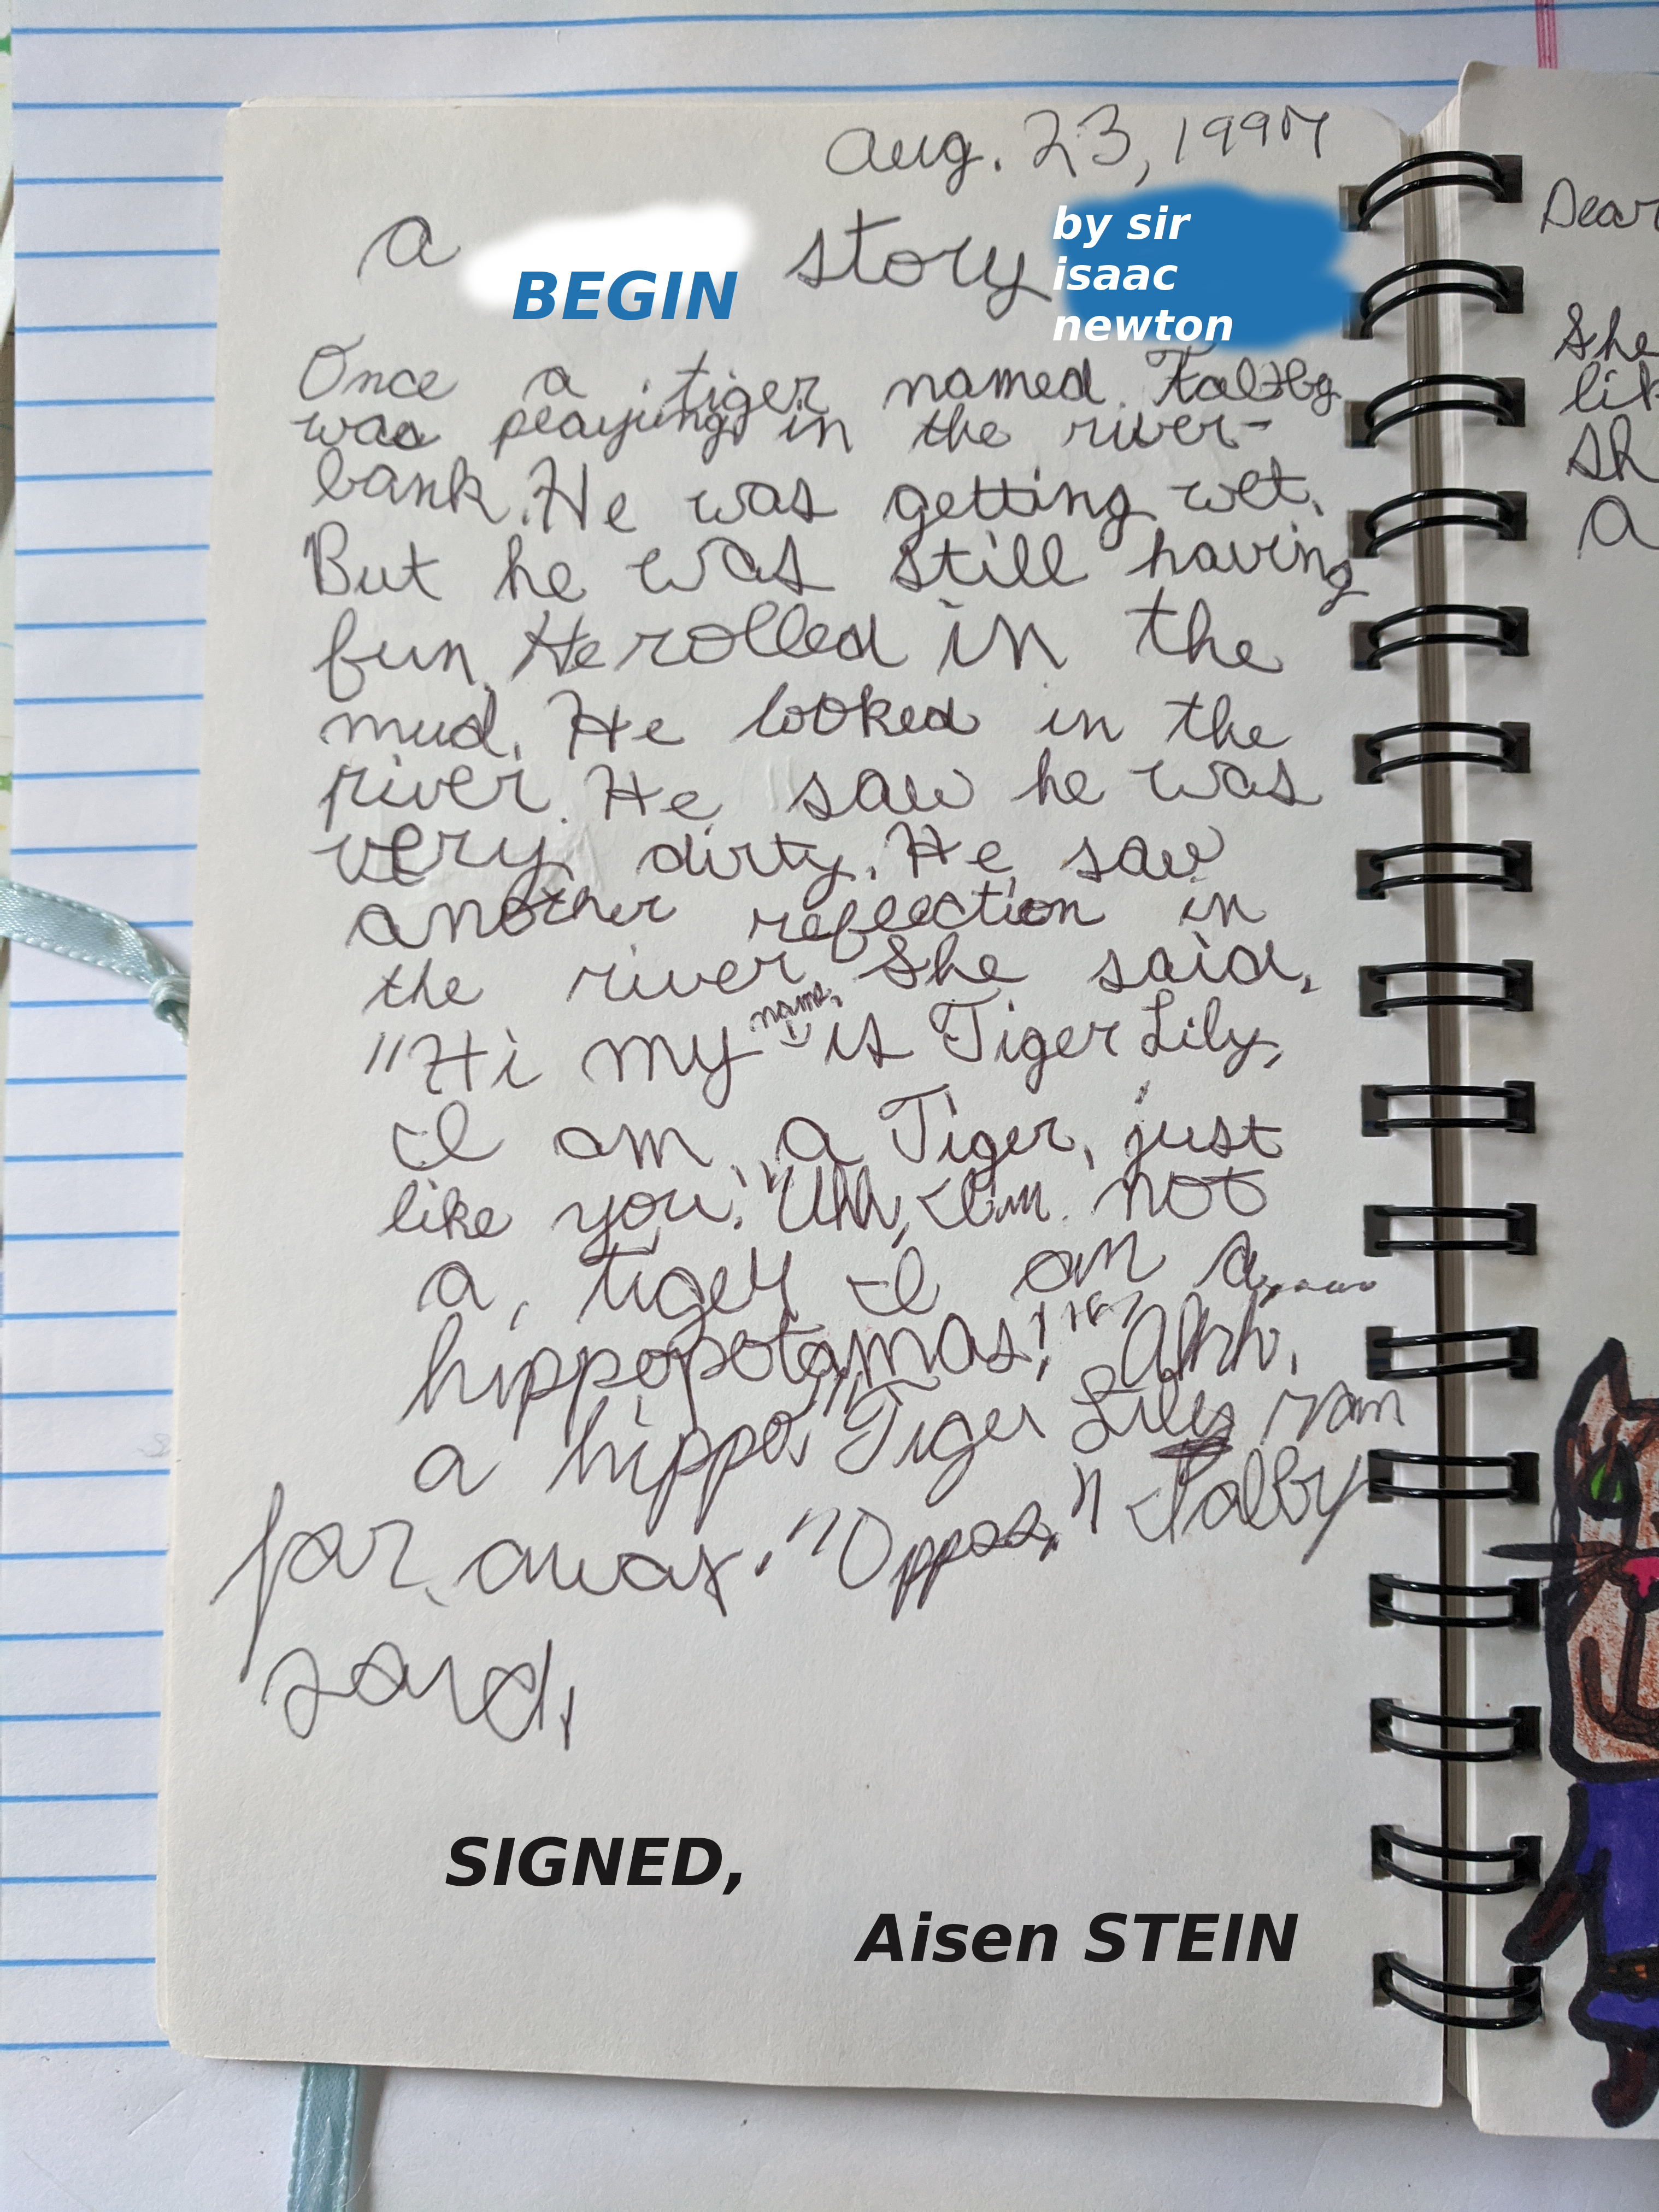 Aug. 23, 1997
A BEGIN story by sir
isaac
newton
Once a tiger named
was playing in the river-
bank. He was getting wet.
But he was still having
fun. He rolled in the
mud. He looked in the
river. He saw he was
very dirty. He saw
another reflection in
the river. She said,
"Hi my name is Tiger Lily,
I am a Tiger, just
like you." "Uhh, I'm not
a tiger I am a....
hippopotamas!" "Ahh,
a hippo." Tiger Lily ran
far away. "Oppss," Talby
said,
SIGNED,
Aisen STEIN
Dear
She
lik
sh
a